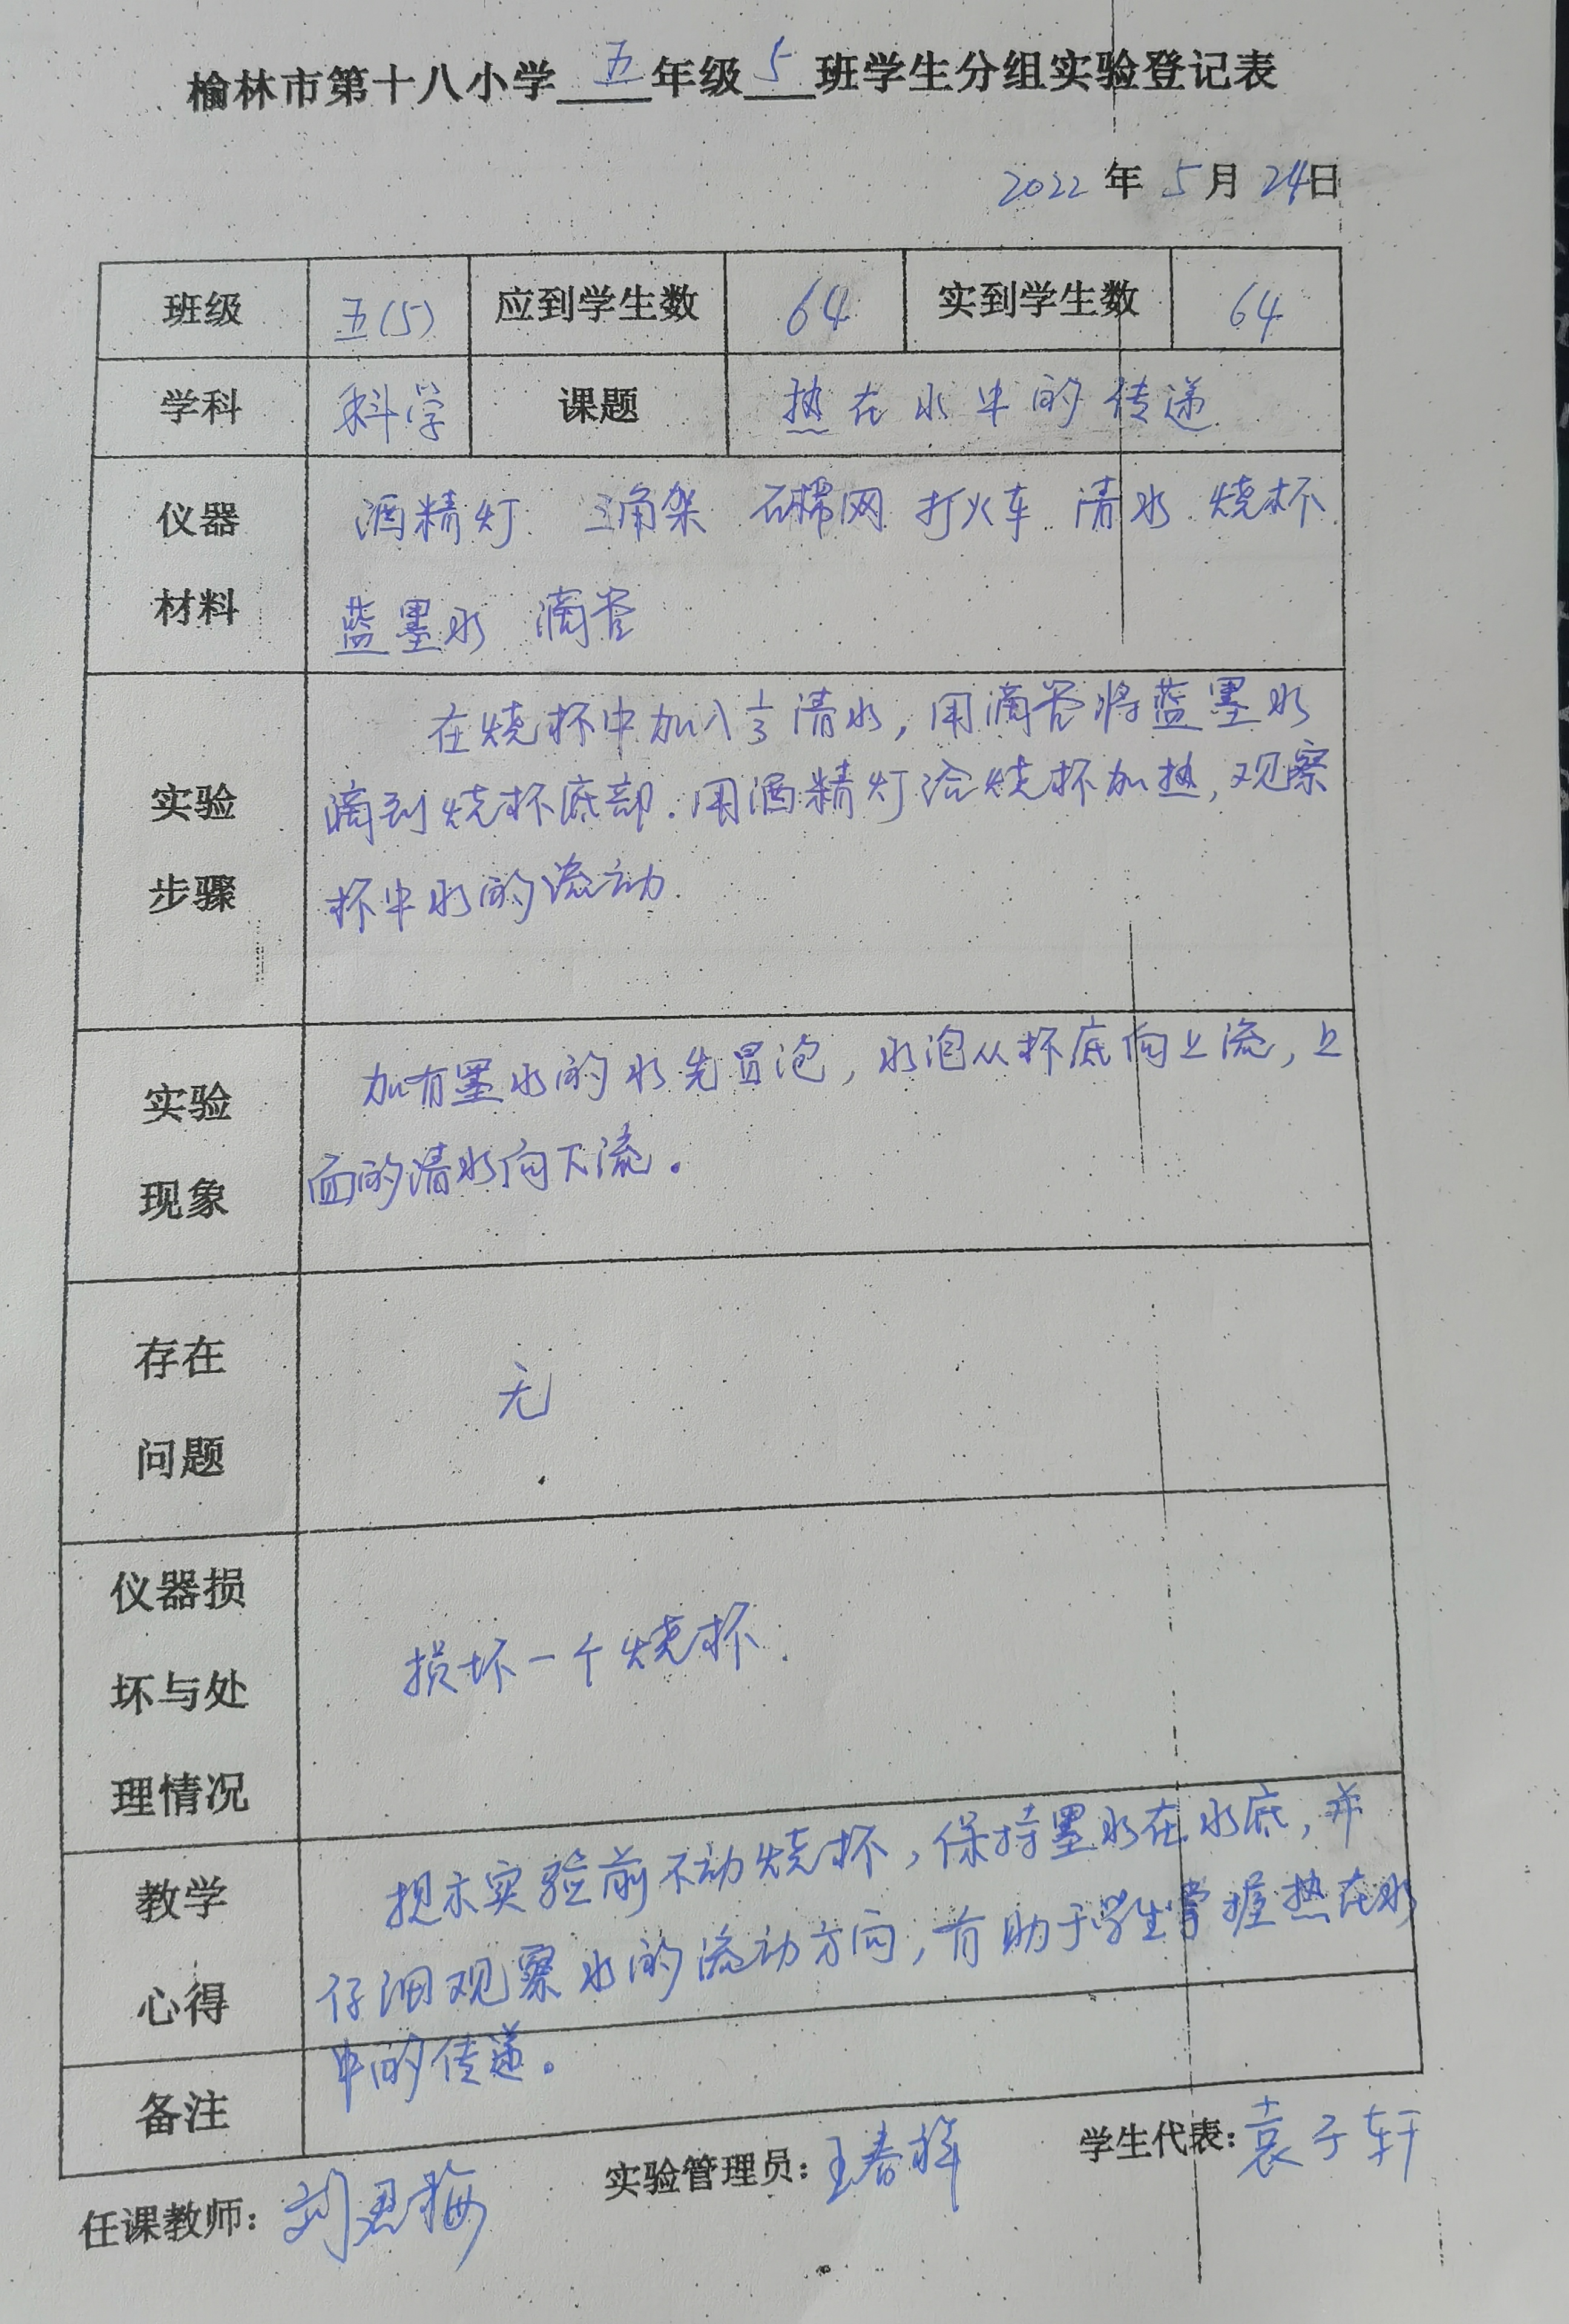 榆林市第十八小学 五 年级 5 班学生分组实验登记表
2022 年 5 月 24日
班级 五(5) 应到学生数 64 实到学生数 64
学科 科学 课题 热在水中的传递
仪器 酒精灯 三角架 石棉网 打火车 清水 烧杯
材料 蓝墨水 滴管
在烧杯中加入1/3清水,用滴管将蓝墨水
实验 滴到烧杯底部.用酒精灯给烧杯加热,观察
步骤 杯中水的流动.
实验 加有墨水的水先冒泡,水泡从杯底向上流,上
现象 面的清水向下流。
存在
无
问题
仪器损
损坏一个烧杯.
坏与处
理情况
教学 提示实验前不动烧杯,保持墨水在水底,并
心得 仔细观察水的流动方向,有助于学生掌握热在水
中的传递。
备注
任课教师: 刘 梅 实验管理员: 王春祥 学生代表: 袁子轩